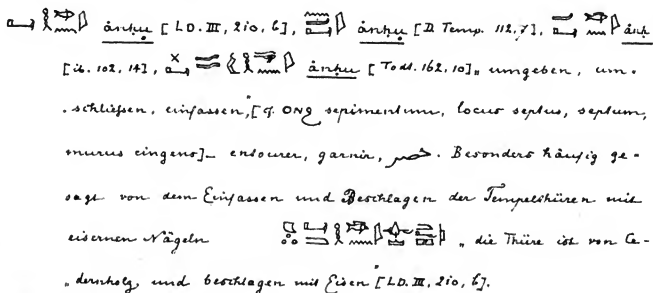 ānḥu [LD. III, 210, b], ānḥu [D. Temp. 112, 7], ānḥ
[ib. 102, 14], ānḥu [Todt. 162, 10] „umgeben, um-
„schließen, einfassen," [cf. ⲟⲛϩ sepimentum, locus septus, septum,
murus cingens] – entourer, garnir, . Besonders häufig ge-
sagt von dem Einfassen und Beschlagen der Tempelthüren mit
eisernen Nägeln „die Thüre ist von Ce-
„dernholz und beschlagen mit Eisen" [LD. III, 210, b].